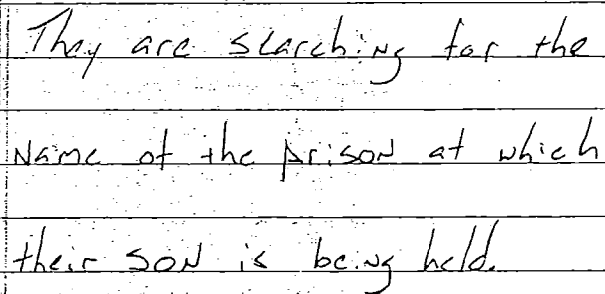 They are searching for the
Name of the prison at which
their son is being held.